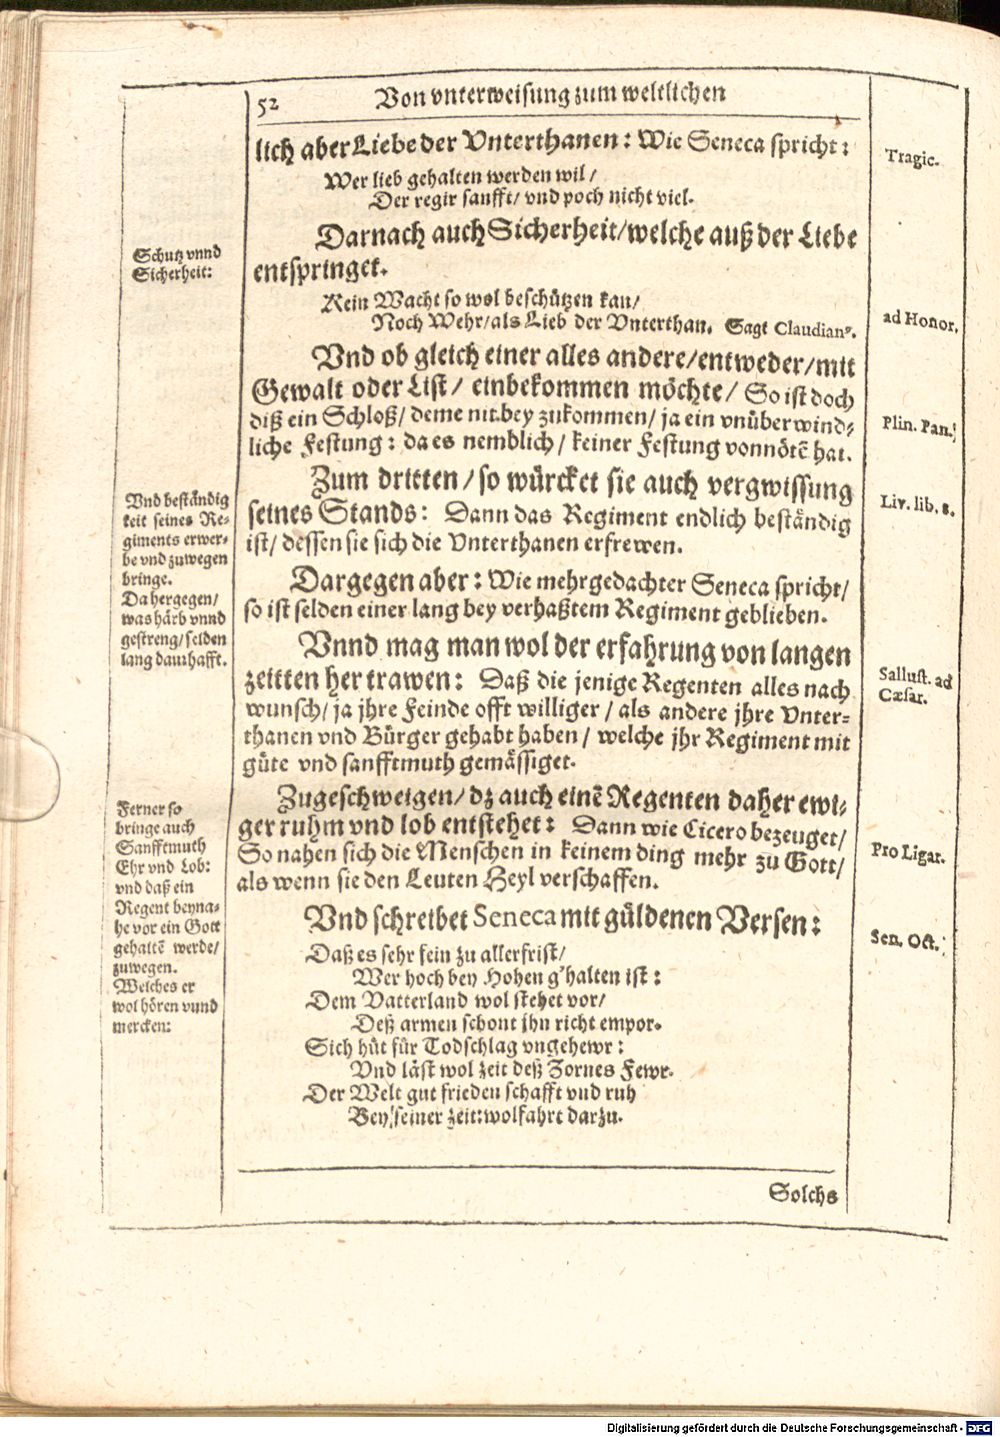 52 Von vnterweisung zum weltlichen
lich aber Liebe der Vnterthanen: Wie Seneca spricht:
Tragic.
Wer lieb gehalten werden wil/
Der regir sanfft/ vnd poch nicht viel.
Darnach auch Sicherheit/welche auß der Liebe
entspringet.
Schutz vnnd
Sicherheit:
Kein Wacht so wol beschützen kan/
Noch Wehr/als Lieb der Vnterthan. Sagt Claudianꝰ.
ad Honor.
Vnd ob gleich einer alles andere/entweder/mit
Gewalt oder List/ einbekommen möchte/ So ist doch
diß ein Schloß/ deme nit bey zukommen/ ja ein vnüberwind-
liche Festung: da es nemblich/ keiner Festung vonnötẽ hat.
Plin. Pan.
Zum dritten/so würcket sie auch vergwissung
seines Stands: Dann das Regiment endlich beständig
ist/ dessen sie sich die Vnterthanen erfrewen.
Liv. lib. 8.
Vnd beständig
keit seines Re-
giments erwer-
be vnd zuwegen
bringe.
Da hergegen/
was härb vnnd
gestreng/selden
lang daurhafft.
Dargegen aber: Wie mehrgedachter Seneca spricht/
so ist selden einer lang bey verhaßtem Regiment geblieben.
Vnnd mag man wol der erfahrung von langen
zeitten her trawen: Daß die jenige Regenten alles nach
wunsch/ ja jhre Feinde offt williger/ als andere jhre Vnter-
thanen vnd Bürger gehabt haben/ welche jhr Regiment mit
güte vnd sanfftmuth gemässiget.
Sallust. ad
Cæsar.
Zugeschweigen/ dz auch einẽ Regenten daher ewi-
ger ruhm vnd lob entstehet: Dann wie Cicero bezeuget/
So nahen sich die Menschen in keinem ding mehr zu Gott/
als wenn sie den Leuten Heyl verschaffen.
Pro Ligar.
Ferner so
bringe auch
Sanfftmuth
Ehr vnd Lob:
vnd daß ein
Regent beyna-
he vor ein Gott
gehaltẽ werde/
zuwegen.
Welches er
wol hören vnnd
mercken:
Vnd schreibet Seneca mit güldenen Versen:
Sen. Oct.
Daß es sehr fein zu allerfrist/
Wer hoch bey Hohen g'halten ist:
Dem Vatterland wol stehet vor/
Deß armen schont jhn richt empor.
Sich hüt für Todschlag vngehewr:
Vnd läst wol zeit deß Zornes Fewr.
Der Welt gut frieden schafft vnd ruh
Bey seiner zeit: wolfahrt darzu.
Solchs
Digitalisierung gefördert durch die Deutsche Forschungsgemeinschaft - DFG